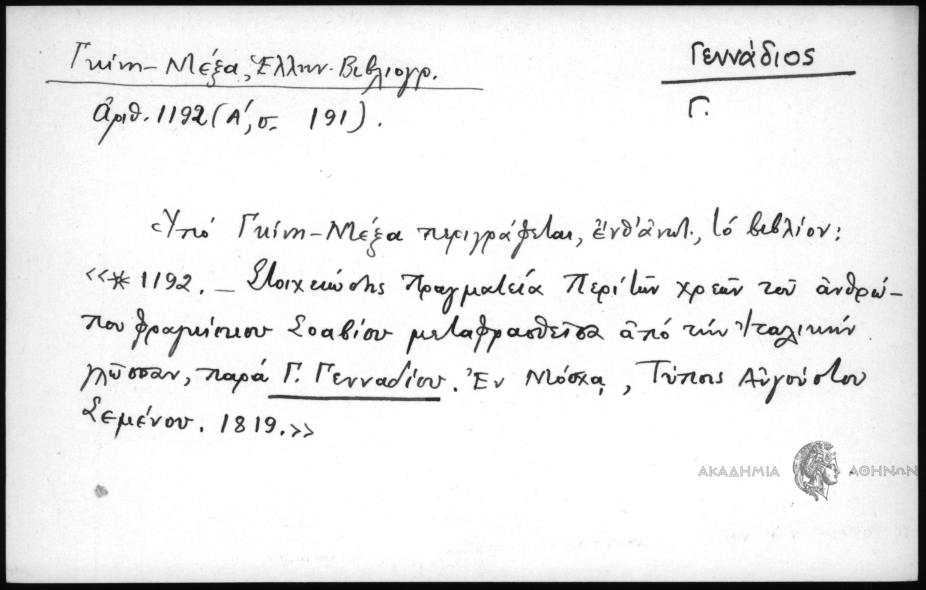 Γκίνη–Μέξα, Ἑλλην. Βιβλιογρ.
Γεννάδιος
ἀριθ. 1192 (Α΄, σ. 191).
Γ.
Ὑπό Γκίνη–Μέξα περιγράφεται, ἐνθ'ἀνωτ., τό βιβλίον:
«* 1192. – Στοιχειώδης πραγματεία Περί τῶν χρεῶν τοῦ ἀνθρώ-
που φραγκίσκου Σοαβίου μεταφρασθεῖσα ἀπό τήν Ἰταλικήν
γλῶσσαν, παρά Γ. Γενναδίου. Ἐν Μόσχᾳ, Τύποις Αὐγούστου
Σεμένου. 1819.»
ΑΚΑΔΗΜΙΑ ΑΘΗΝΩΝ